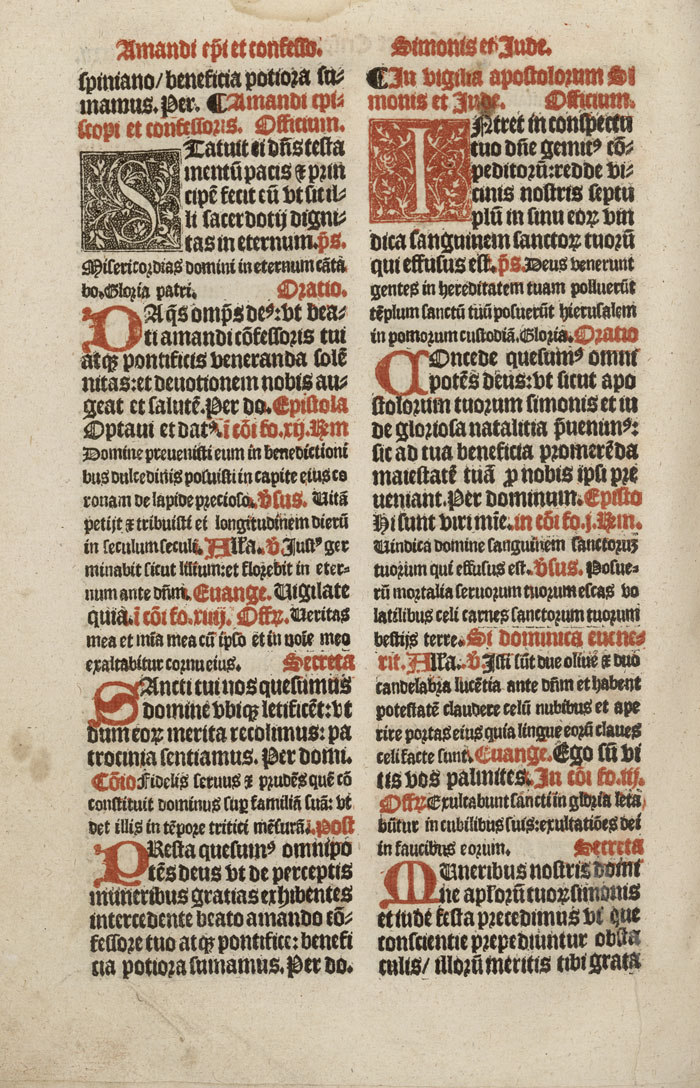 Amandi ep̄i et confesso.
spiniano/ beneficia potiora su⸗
mamus. Per. ¶ Amandi epi⸗
scopi et confessoris. Officium.
STatuit ei dn̄s testa
mentū pacis ⁊ prin
cipē fecit eū vt sit il⸗
li sacerdotij digni⸗
tas in eternum. p̄s.
Misericordias domini in eternum cātā
bo. Gloria patri. Oratio.
DA q̄s omp̄s deꝰ: vt bea⸗
ti amandi cōfessoris tui
atqꝫ pontificis veneranda solē
nitas: et deuotionem nobis au⸗
geat et salutē. Per do. Epistola
Optaui et datꝰ. i cōi fo. xij. Rm
Domine preuenisti eum in benedictioni
bus dulcedinis posuisti in capite eius co
ronam de lapide precioso. v̄sus. Uitā
petijt ⁊ tribuisti ei longitudinem dierū
in seculum seculi. All'a. v̄ Justꝰ ger
minabit sicut lilium: et florebit in eter⸗
num ante dn̄m. Euange. Uigilate
quia. i cōi fo. xiiij. Offꝝ. Ueritas
mea et mīa mea cū ipso et in noīe meo
exaltabitur cornu eius. Secreta
SAncti tui nos quesumus
domine vbiqꝫ letificēt: vt
dum eoꝝ merita recolimus: pa
trocinia sentiamus. Per domi.
Cōio Fidelis seruus ⁊ prudēs quē cō
constituit dominus suꝑ familiā suā: vt
det illis in tēpore tritici mēsurā. post
PResta quesumꝰ omnipo
tēs deus vt de perceptis
muneribus gratias exhibentes
intercedente beato amando cō⸗
fessore tuo atqꝫ pontifice: benefi
cia potiora sumamus. Per do.
Simonis et Jude.
¶ In vigilia apostolorum Si
monis et Jude. Officium.
INtret in conspectu
tuo dn̄e gemitꝰ cō⸗
peditorū: redde vi⸗
cinis nostris septu
plū in sinu eoꝝ vin
dica sanguinem sanctoꝝ tuorū
qui effusus est. p̄s. Deus venerunt
gentes in hereditatem tuam polluerūt
tēplum sanctū tuū posuerūt hierusalem
in pomorum custodiā. Gloria. Oratio
COncede quesumꝰ omni
potēs deus: vt sicut apo
stolorum tuorum simonis et iu
de gloriosa natalitia p̄uenimꝰ:
sic ad tua beneficia promerēda
maiestatē tuā ꝓ nobis ipsi pre
ueniant. Per dominum. Episto
Hi sunt viri mīe. in cōi fo. j. Rm.
Uindica domine sanguinem sanctoruꝫ
tuorum qui effusus est. v̄sus. Posue⸗
rū mortalia seruorum tuorum escas vo
latilibus celi carnes sanctorum tuorum
bestijs terre. Si dominica euene⸗
rit. All'a. v̄ Isti sūt due oliue ⁊ duo
candelabra lucētia ante dn̄m et habent
potestatē claudere celū nubibus et ape
rire portas eius quia lingue eorū claues
celi facte sunt. Euange. Ego sū vi
tis vos palmites. In cōi fo. iij.
Offꝝ Exultabunt sancti in gloria letā
būtur in cubilibus suis: exultatiōes dei
in faucibus eorum. Secreta
MUneribus nostris domi
ne apl'orū tuoꝝ simonis
et iude festa precedimus vt que
conscientie prepediuntur obsta
culis/ illorū meritis tibi grata